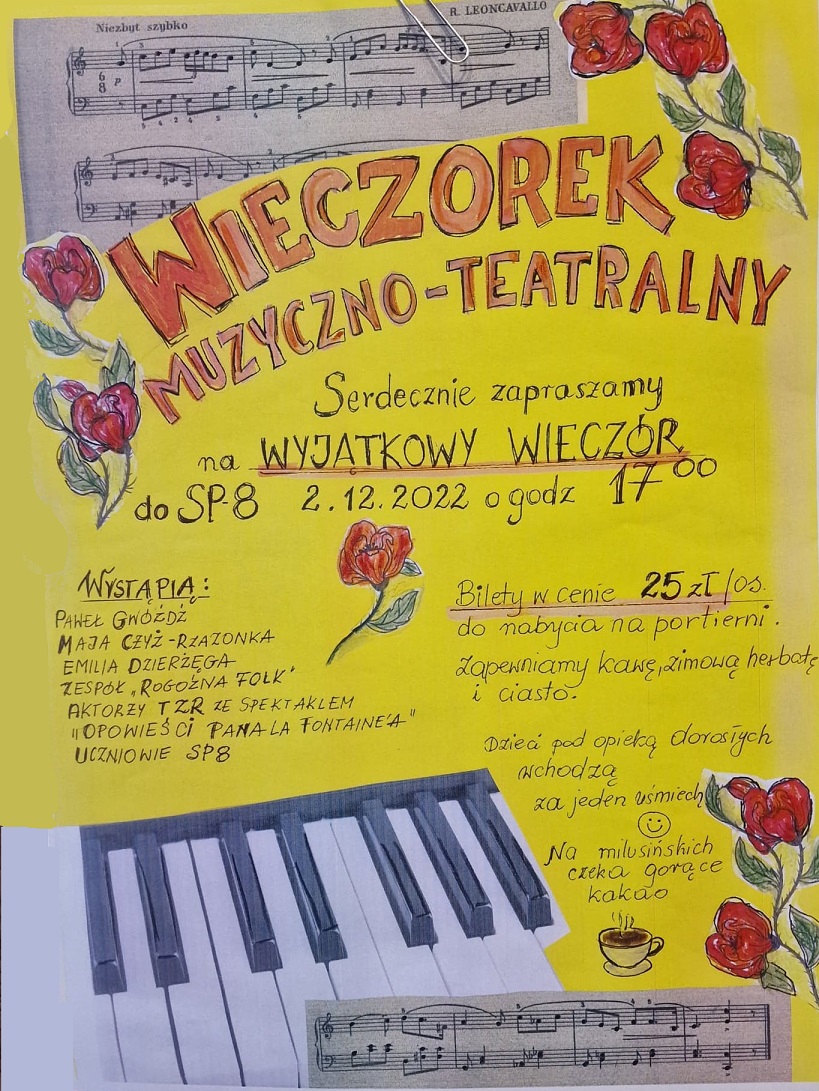 Niezbyt szybko
R. LEONCAVALLO
WIECZOREK
MUZYCZNO-TEATRALNY
Serdecznie zapraszamy
na WYJĄTKOWY WIECZÓR
do SP-8 2.12.2022 o godz 17⁰⁰
WYSTĄPIĄ:
PAWEŁ GWÓŹDŹ
MAJA CZYŻ-RZAZONKA
EMILIA DZIERŻĘGA
ZESPÓŁ „ROGOŹNA FOLK"
AKTORZY TZR ZE SPEKTAKLEM
"OPOWIEŚCI PANA LA FONTAINE'A"
UCZNIOWIE SP8
Bilety w cenie 25 zł/os.
do nabycia na portierni.
Zapewniamy kawę, zimową herbatę
i ciasto.
Dzieci pod opieką dorosłych
wchodzą
za jeden uśmiech
Na milusińskich
czeka gorące
kakao